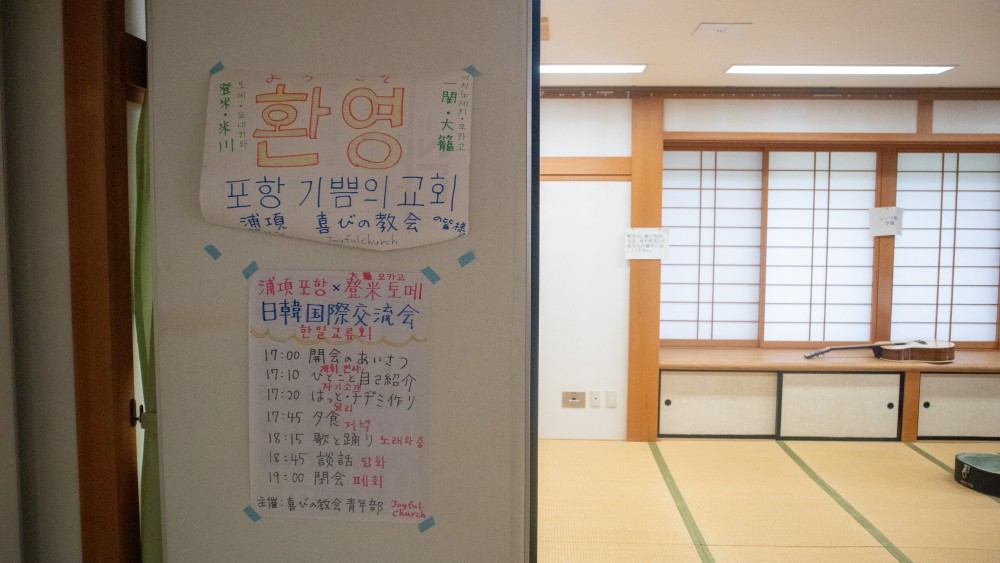 ようこそ
환영
登米・米川
토메・요네카와
一関・大籠
이치노세키・오카고
포항 기쁨의 교회
浦項 喜びの教会 の皆様
Joyfulchurch
大籠 오카고
浦項 포항 × 登米 토메
日韓国際交流会
한일교류회
17:00 開会のあいさつ
개회 인사
17:10 ひとこと自己紹介
자기소개
17:20 はっと・チヂミ作り
요리
17:45 夕食 저녁
18:15 歌と踊り 노래와 춤
18:45 談話 담화
19:00 閉会 폐회
主催:喜びの教会 青年部 Joyful-
Church